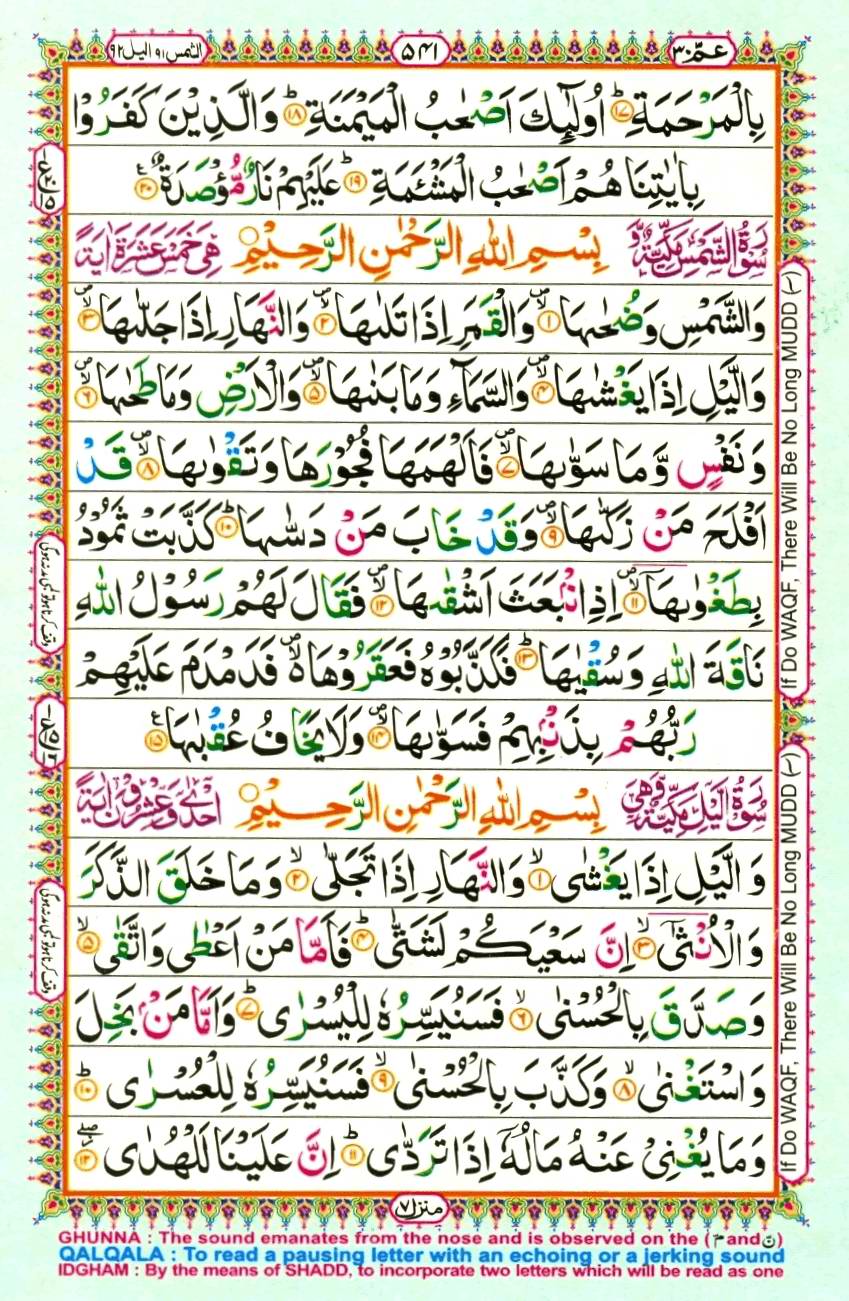 عـمّ ۳۰
۵۴۱
الشمس ۹۱ اليل ۹۲
بِالْمَرْحَمَةِؕ﴿۱۷﴾ اُولٰٓئِكَ اَصْحٰبُ الْمَيْمَنَةِؕ﴿۱۸﴾ وَالَّذِيْنَ كَفَرُوْا
بِاٰيٰتِنَا هُمْ اَصْحٰبُ الْمَشْئَمَةِؕ﴿۱۹﴾ عَلَيْهِمْ نَارٌ مُّؤْصَدَةٌ﴿۲۰﴾
سُوْرَةُ الشَّمْسِ مَكِّيَّةٌ وَّ بِسْمِ اللّٰهِ الرَّحْمٰنِ الرَّحِيْمِ هِيَ خَمْسَ عَشْرَةَ اٰيَةً
وَالشَّمْسِ وَضُحٰىهَا﴿۱﴾ وَالْقَمَرِ اِذَا تَلٰىهَا﴿۲﴾ وَالنَّهَارِ اِذَا جَلّٰىهَا﴿۳﴾
وَالَّيْلِ اِذَا يَغْشٰىهَا﴿۴﴾ وَالسَّمَآءِ وَمَا بَنٰىهَا﴿۵﴾ وَالْاَرْضِ وَمَا طَحٰىهَا﴿۶﴾
وَنَفْسٍ وَّمَا سَوّٰىهَا﴿۷﴾ فَاَلْهَمَهَا فُجُوْرَهَا وَتَقْوٰىهَا﴿۸﴾ قَدْ
اَفْلَحَ مَنْ زَكّٰىهَا﴿۹﴾ وَقَدْ خَابَ مَنْ دَسّٰىهَاؕ﴿۱۰﴾ كَذَّبَتْ ثَمُوْدُ
بِطَغْوٰىهَاۤ﴿۱۱﴾ اِذِ انْۢبَعَثَ اَشْقٰىهَا﴿۱۲﴾ فَقَالَ لَهُمْ رَسُوْلُ اللّٰهِ
نَاقَةَ اللّٰهِ وَسُقْيٰهَاؕ﴿۱۳﴾ فَكَذَّبُوْهُ فَعَقَرُوْهَا۪ۙ فَدَمْدَمَ عَلَيْهِمْ
رَبُّهُمْ بِذَنْۢبِهِمْ فَسَوّٰىهَا﴿۱۴﴾ وَلَا يَخَافُ عُقْبٰهَا﴿۱۵﴾
سُوْرَةُ الَّيْلِ مَكِّيَّةٌ وَّهِيَ بِسْمِ اللّٰهِ الرَّحْمٰنِ الرَّحِيْمِ اِحْدٰى وَّعِشْرُوْنَ اٰيَةً
وَالَّيْلِ اِذَا يَغْشٰى﴿۱﴾ وَالنَّهَارِ اِذَا تَجَلّٰى﴿۲﴾ وَمَا خَلَقَ الذَّكَرَ
وَالْاُنْثٰىۤ﴿۳﴾ اِنَّ سَعْيَكُمْ لَشَتّٰىؕ﴿۴﴾ فَاَمَّا مَنْ اَعْطٰى وَاتَّقٰى﴿۵﴾
وَصَدَّقَ بِالْحُسْنٰى﴿۶﴾ فَسَنُيَسِّرُهٗ لِلْيُسْرٰىؕ﴿۷﴾ وَاَمَّا مَنْۢ بَخِلَ
وَاسْتَغْنٰى﴿۸﴾ وَكَذَّبَ بِالْحُسْنٰى﴿۹﴾ فَسَنُيَسِّرُهٗ لِلْعُسْرٰىؕ﴿۱۰﴾
وَمَا يُغْنِيْ عَنْهُ مَالُهٗۤ اِذَا تَرَدّٰىؕ﴿۱۱﴾ اِنَّ عَلَيْنَا لَلْهُدٰى﴿۱۲﴾
منزل ۷
If Do WAQF, There Will Be No Long MUDD (~)
If Do WAQF, There Will Be No Long MUDD (~)
GHUNNA : The sound emanates from the nose and is observed on the (م and ن)
QALQALA : To read a pausing letter with an echoing or a jerking sound
IDGHAM : By the means of SHADD, to incorporate two letters which will be read as one